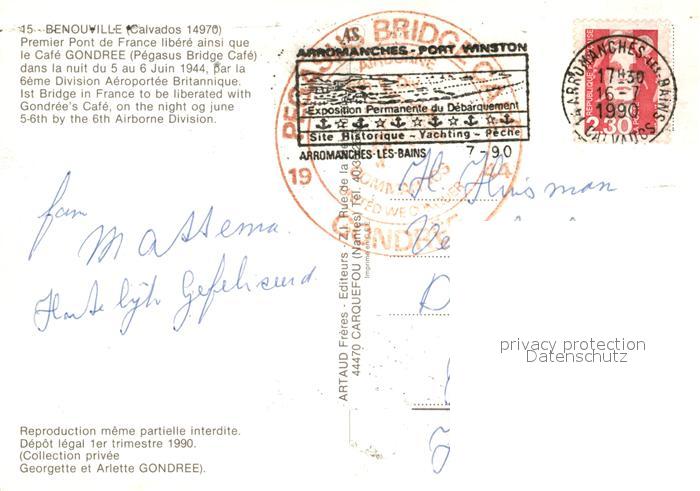 15 - BENOUVILLE (Calvados 14970)
Premier Pont de France libéré ainsi que
le Café GONDREE (Pégasus Bridge Café)
dans la nuit du 5 au 6 Juin 1944, par la
6ème Division Aéroportée Britannique.
Ist Bridge in France to be liberated with
Gondrée's Café, on the night og june
5-6th by the 6th Airborne Division.
PEGASUS BRIDGE
AIRBORNE
19 44
COMMANDOS
GONDREE
ARROMANCHES - PORT WINSTON
Exposition Permanente du Débarquement
Site Historique - Yachting - Pêche
ARROMANCHES-LES-BAINS 7-90
ARROMANCHES LES BAINS
17H30
16-7
1990
CALVADOS
2,30
H. Huisman
fam
Mattema
Hartelijk Gefeliciteerd
ARTAUD Frères - Editeurs - Z.I. Rue de la
44470 CARQUEFOU (Nantes) Tél.
privacy protection
Datenschutz
Reproduction même partielle interdite.
Dépôt légal 1er trimestre 1990.
(Collection privée
Georgette et Arlette GONDREE).